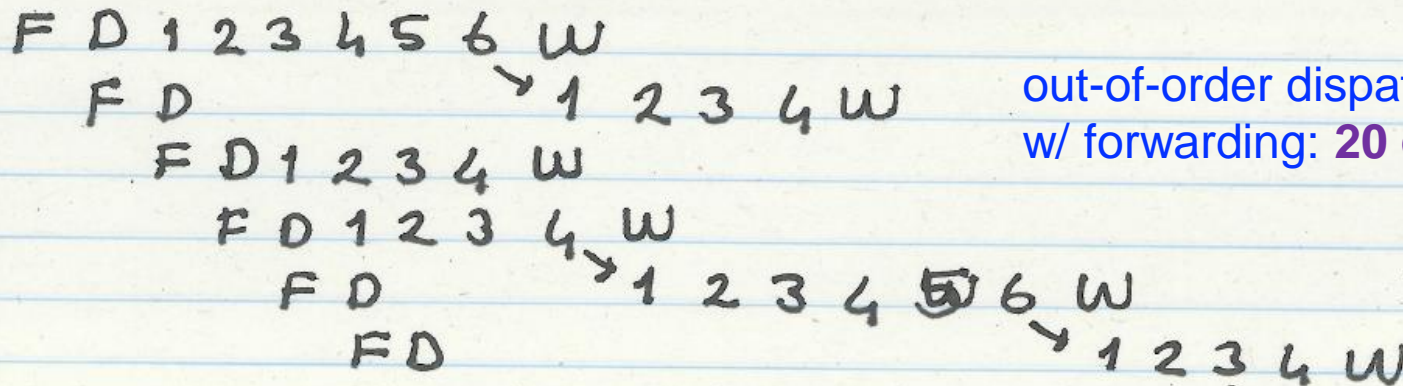 F D 1 2 3 4 5 6 W
F D 1 2 3 4 W
F D 1 2 3 4 W
F D 1 2 3 4 W
F D 1 2 3 4 5 6 W
F D 1 2 3 4 W
out-of-order dispat
w/ forwarding: 20